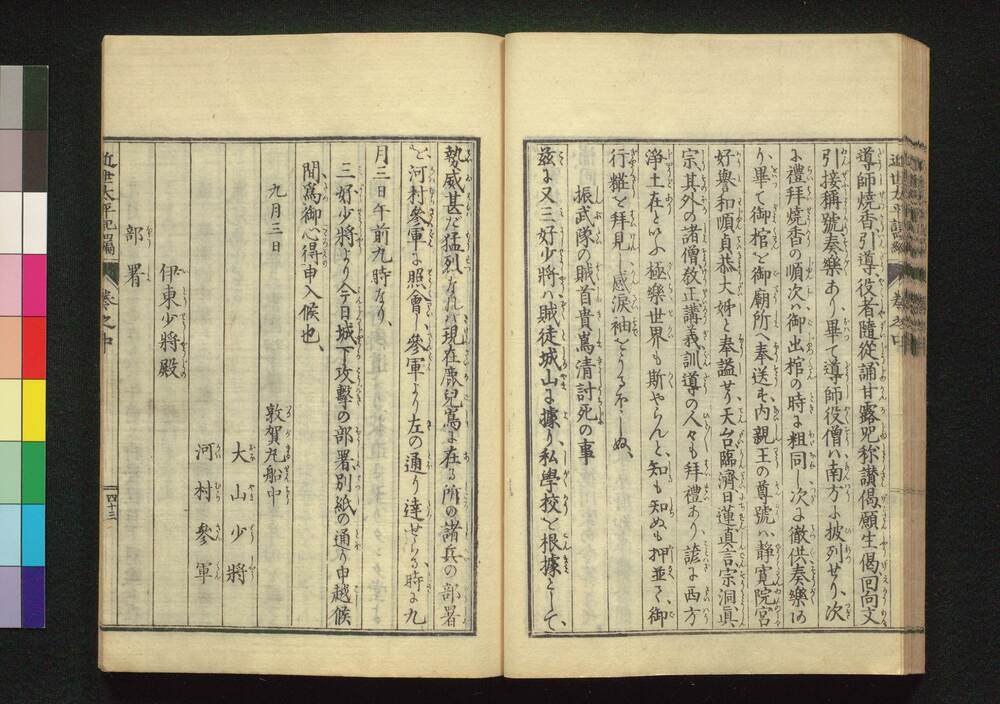 導師燒香引導、役者隨從、誦甘露咒称讃偈、願生偈、回向文
引接稱號奏樂あり、畢て導師役僧ハ南方に披列せり、次
に禮拜燒香の順次ハ御出棺の時に粗同し、次に徹供奏樂
り、畢て御棺を御廟所へ奉送す、内親王の尊號ハ靜寛院宮
好譽和順貞恭大姉と奉謚せり、天台臨濟日蓮眞言宗洞眞
宗其外の諸僧教正講義訓導の人々も拜禮あり、諺に西方
淨土在といふ極樂世界も斯やらんと、知も知ぬも押並て、御
行糚を拜見し感涙袖をしぼりぬ、
振武隊の賊首貴嶌清討死の事
茲に又三好少將ハ賊徒城山に據り、私學校を根據として、
勢威甚だ猛烈なれバ現在鹿兒嶌に在る所の諸兵の部署
を、河村參軍に照會し、參軍より左の通り達せらる、時に九
月三日午前九時なり、
三好少將より今日城下攻擊の部署別紙の通り申越候
間爲御心得申入候也、
九月三日
敦賀丸船中
大山少將
河村參軍
伊東少將殿
部署
近世太平記
卷之中
四十三